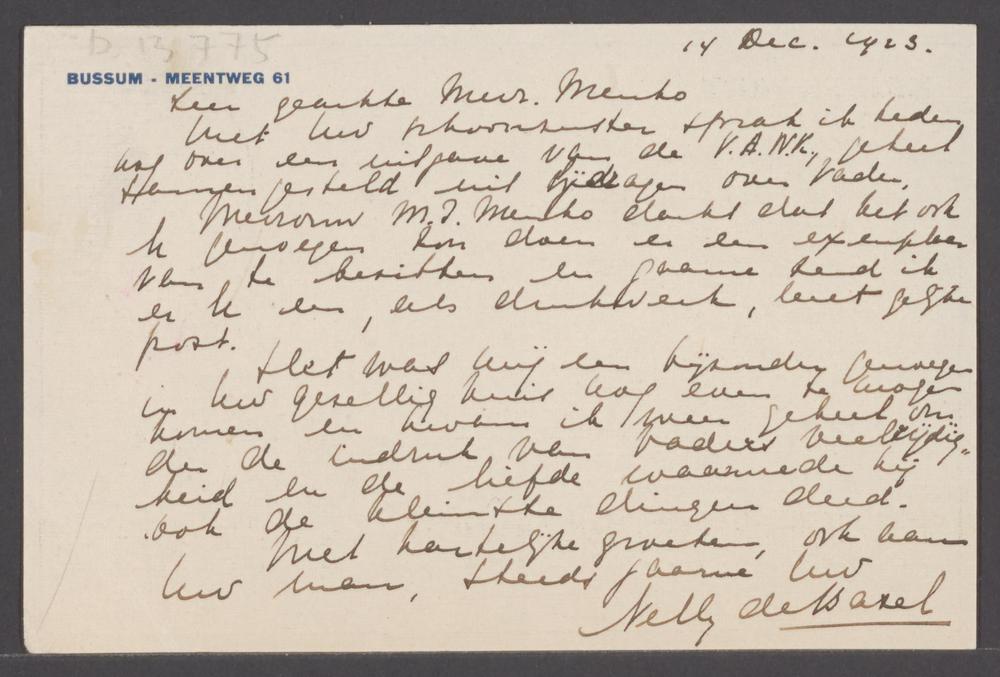 D. 13 775
14 Dec. 1923.
BUSSUM - MEENTWEG 61
Zeer geachte Mevr. Menko
Met Uw schoonzuster sprak ik heden
nog over een uitgave van de V.A.N.K., geheel
samengesteld uit bijdragen over Vader.
Mevrouw M.J. Menko dacht dat het ook
U genoegen zou doen er een exemplaar
van te bezitten en gaarne zend ik
er U een, als drukwerk, met gelijke
post.
Het was mij een bijzonder genoegen
in Uw gezellig huis nog even te mogen
komen en kwam ik weer geheel on-
der de indruk van Vader's veelzijdig-
heid en de liefde waarmede hij
ook de kleinste dingen deed.
Met hartelijke groeten, ook aan
Uw man, steeds gaarne Uw
Nelly de Bazel